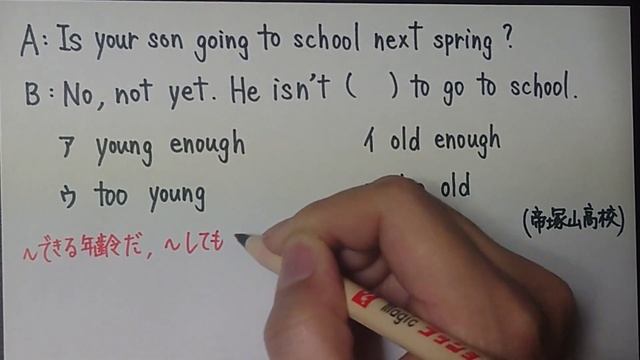 A: Is your son going to school next spring?
B: No, not yet. He isn't (   ) to go to school.
ア young enough イ old enough
ウ too young old
(帝塚山高校)
~できる年齢だ, ~しても
magic